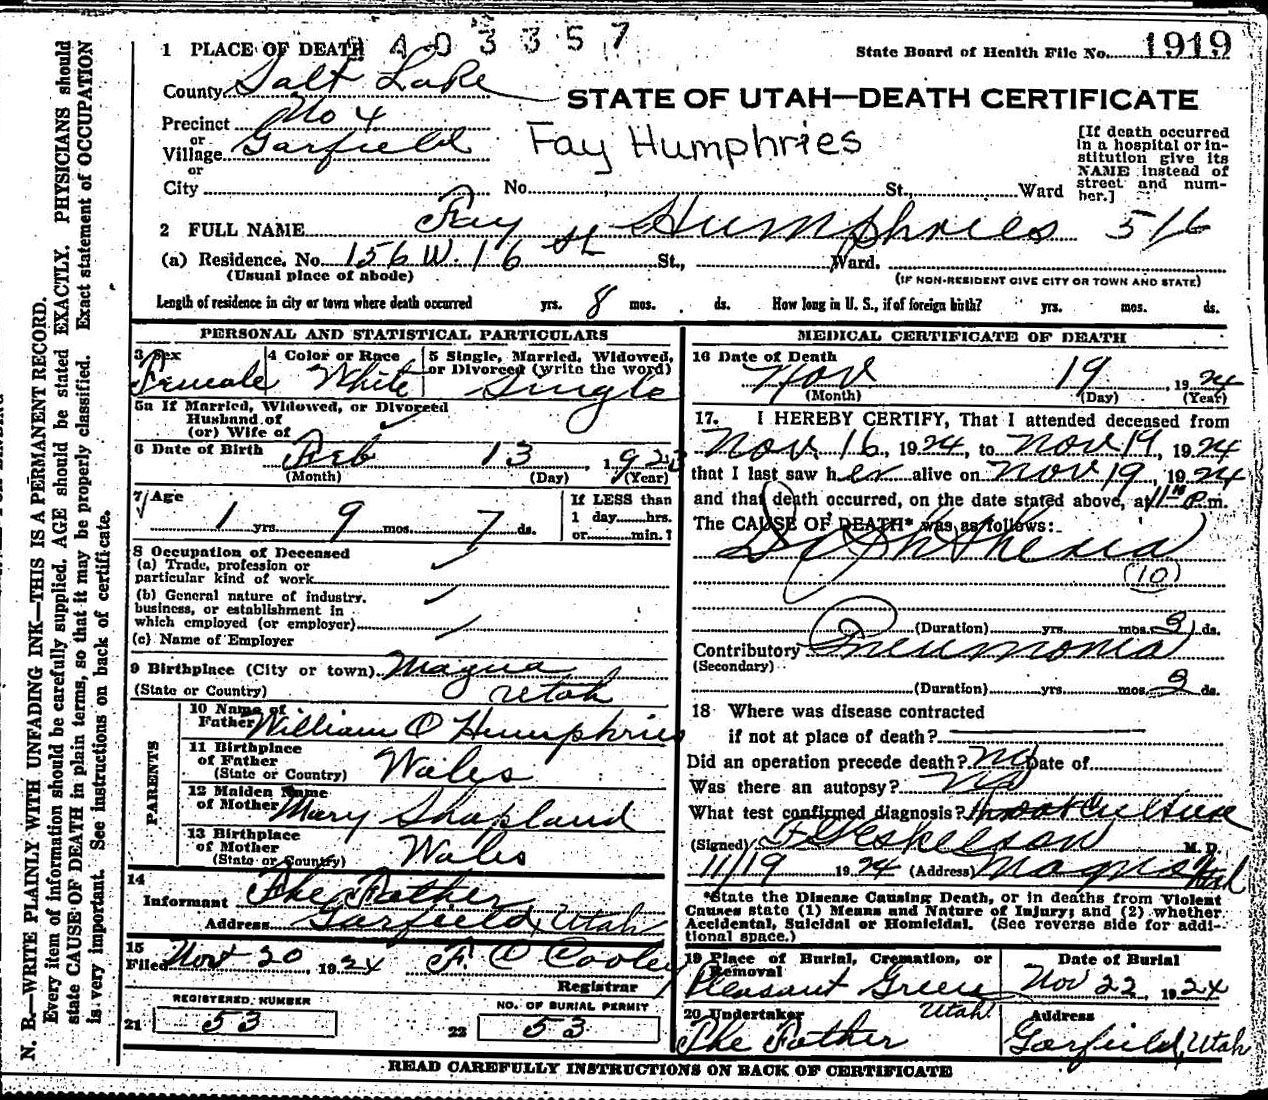 N. B.—WRITE PLAINLY WITH UNFADING INK—THIS IS A PERMANENT RECORD.
Every item of information should be carefully supplied. AGE should be stated EXACTLY. PHYSICIANS should
state CAUSE OF DEATH in plain terms, so that it may be properly classified. Exact statement of OCCUPATION
is very important. See instructions on back of certificate.
1 PLACE OF DEATH 2403357
State Board of Health File No. 1919
County Salt Lake
STATE OF UTAH—DEATH CERTIFICATE
Precinct No 4
or
Village Garfield
or
City
Fay Humphries
[If death occurred
in a hospital or in-
stitution give its
NAME instead of
street and num-
ber.]
No. St., Ward
2 FULL NAME Fay Humphries 516
(a) Residence. No. 156 W. 16 St St., Ward.
(Usual place of abode) (IF NON-RESIDENT GIVE CITY OR TOWN AND STATE)
Length of residence in city or town where death occurred yrs. 8 mos. ds. How long in U. S., if of foreign birth? yrs. mos. ds.
PERSONAL AND STATISTICAL PARTICULARS
3 Sex Female
4 Color or Race White
5 Single, Married, Widowed,
or Divorced (write the word)
Single
5a If Married, Widowed, or Divorced
Husband of
(or) Wife of
6 Date of Birth Feb 13, 1923
(Month) (Day) (Year)
7 Age
1 yrs. 9 mos. 7 ds.
If LESS than
1 day......hrs.
or......min.?
8 Occupation of Deceased
(a) Trade, profession or
particular kind of work
(b) General nature of industry,
business, or establishment in
which employed (or employer)
(c) Name of Employer
9 Birthplace (City or town) Magna
(State or Country) Utah
PARENTS
10 Name of
Father William O Humphries
11 Birthplace
of Father
(State or Country) Wales
12 Maiden Name
of Mother Mary Shapland
13 Birthplace
of Mother
(State or Country) Wales
14
Informant The Father
Address Garfield, Utah
15
Filed Nov 20, 1924 F. O Cooley
Registrar
REGISTERED NUMBER
21 53
NO. OF BURIAL PERMIT
22 53
MEDICAL CERTIFICATE OF DEATH
16 Date of Death
Nov 19, 1924
(Month) (Day) (Year)
17. I HEREBY CERTIFY, That I attended deceased from
Nov. 16, 1924, to Nov 19, 1924
that I last saw her alive on Nov 19, 1924
and that death occurred, on the date stated above, at 11 10 P.m.
The CAUSE OF DEATH* was as follows:
Diphtheria
(10)
(Duration) yrs. mos. 3 ds.
Contributory Pneumonia
(Secondary)
(Duration) yrs. mos. 3 ds.
18 Where was disease contracted
if not at place of death?
Did an operation precede death? no Date of
Was there an autopsy? no
What test confirmed diagnosis? throat culture
(Signed) Eskelson M. D.
11/19 1924 (Address) Magna Utah
*State the Disease Causing Death, or in deaths from Violent
Causes state (1) Means and Nature of Injury; and (2) whether
Accidental, Suicidal or Homicidal. (See reverse side for addi-
tional space.)
19 Place of Burial, Cremation, or
Removal
Pleasant Green
Utah
Date of Burial
Nov 22, 1924
20 Undertaker
The Father
Address
Garfield, Utah
READ CAREFULLY INSTRUCTIONS ON BACK OF CERTIFICATE